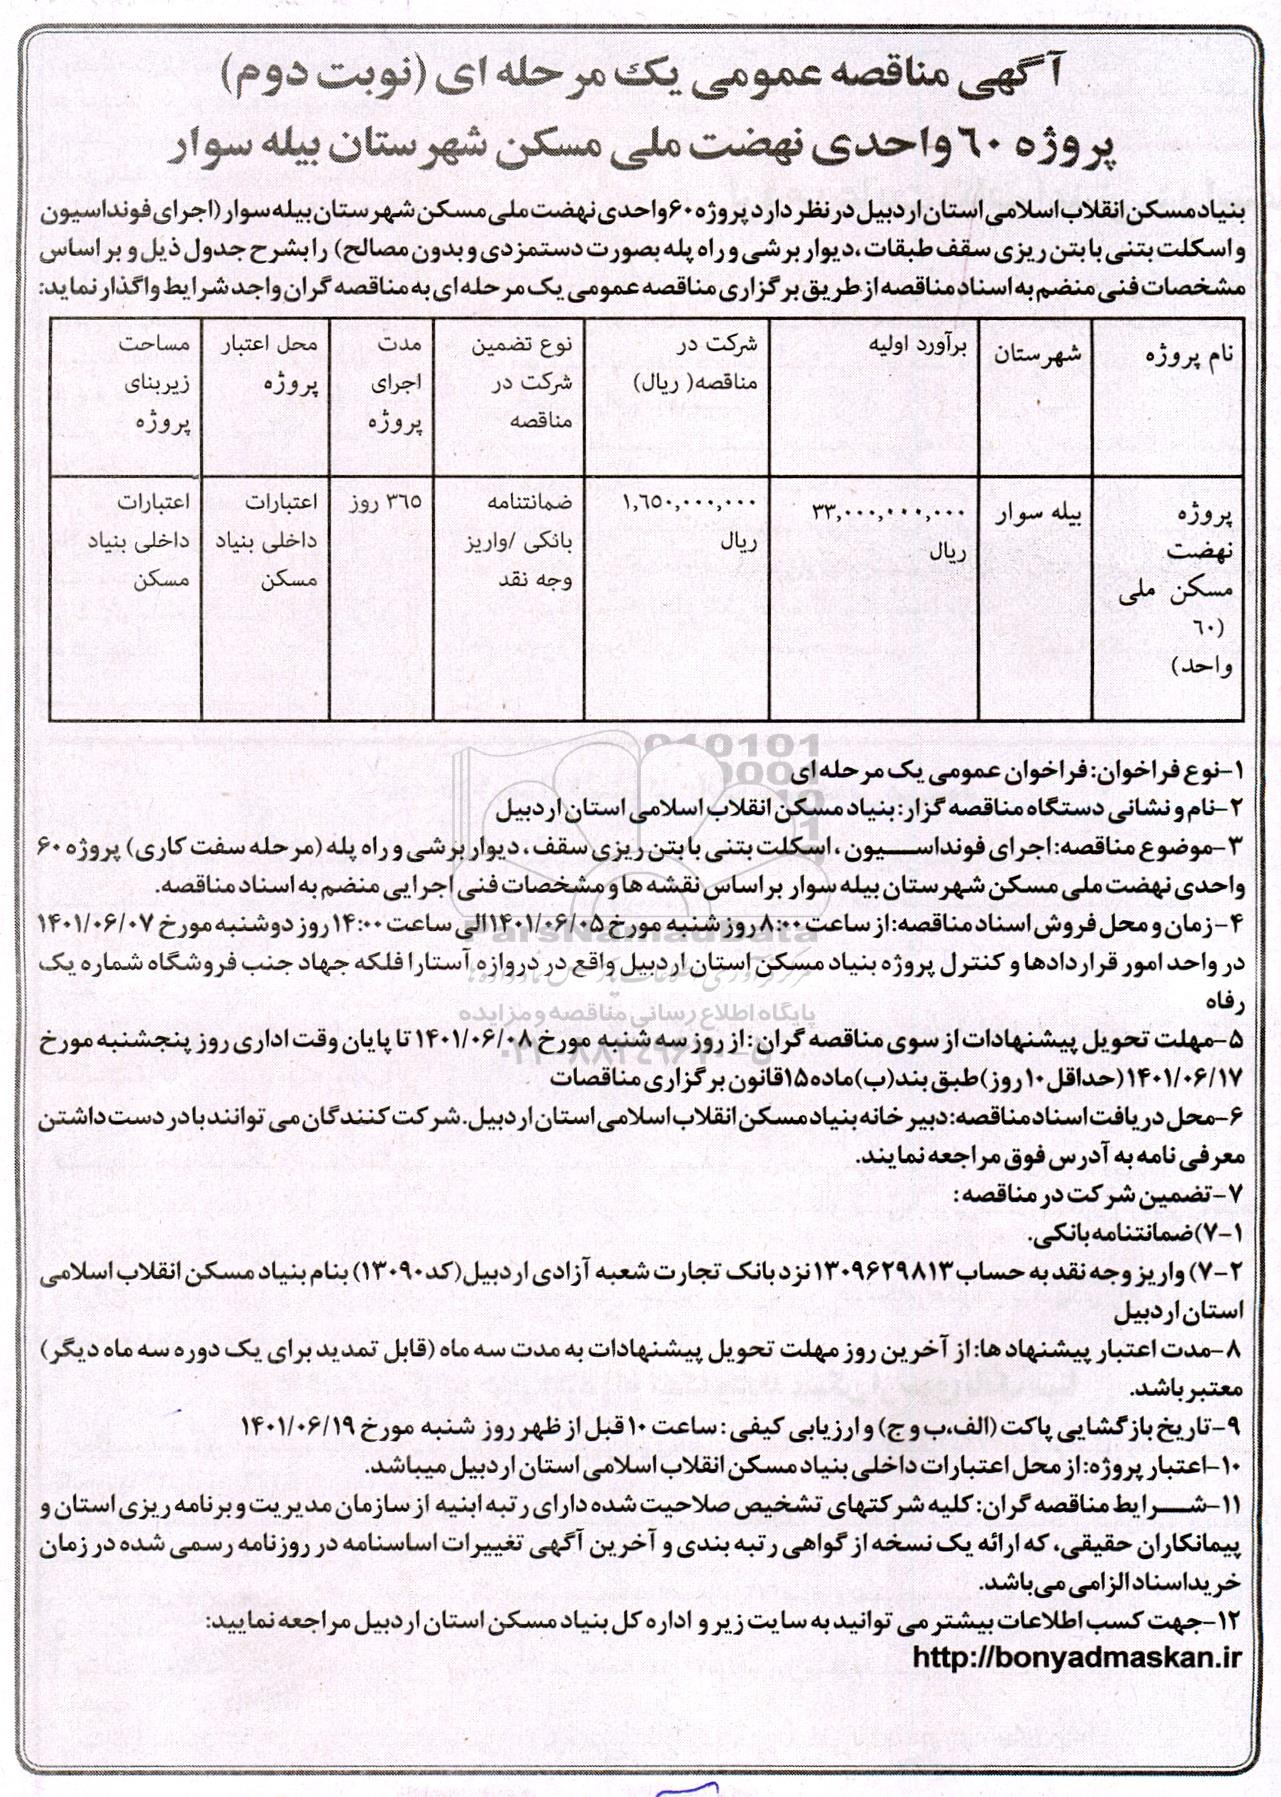 آگهی مناقصه عمومی یک مرحله ای (نوبت دوم)
پروژه ٦٠ واحدی نهضت ملی مسکن شهرستان بیله سوار
بنیاد مسکن انقلاب اسلامی استان اردبیل در نظر دارد پروژه ۶۰ واحدی نهضت ملی مسکن شهرستان بیله سوار (اجرای فونداسیون
و اسکلت بتنی با بتن ریزی سقف طبقات ،دیوار برشی و راه پله بصورت دستمزدی و بدون مصالح) را بشرح جدول ذیل و بر اساس
مشخصات فنی منضم به اسناد مناقصه از طریق برگزاری مناقصه عمومی یک مرحله ای به مناقصه گران واجد شرایط واگذار نماید:
نام پروژه
شهرستان
برآورد اولیه
شرکت در
مناقصه( ریال)
نوع تضمین
شرکت در
مناقصه
مدت
اجرای
پروژه
محل اعتبار
پروژه
مساحت
زیربنای
پروژه
پروژه
نهضت
مسکن ملی
(٦٠
واحد)
بیله سوار
٣٣,٠٠٠,٠٠٠,٠٠٠
ریال
١,٦٥٠,٠٠٠,٠٠٠
ریال
ضمانتنامه
بانکی /واریز
وجه نقد
٣٦٥ روز
اعتبارات
داخلی بنیاد
مسکن
اعتبارات
داخلی بنیاد
مسکن
۱-نوع فراخوان: فراخوان عمومی یک مرحله ای
۲-نام و نشانی دستگاه مناقصه گزار: بنیاد مسکن انقلاب اسلامی استان اردبیل
۳-موضوع مناقصه: اجرای فونداسیون ، اسکلت بتنی با بتن ریزی سقف ، دیوار برشی و راه پله (مرحله سفت کاری) پروژه ۶۰
واحدی نهضت ملی مسکن شهرستان بیله سوار بر اساس نقشه ها و مشخصات فنی اجرایی منضم به اسناد مناقصه.
۴-زمان و محل فروش اسناد مناقصه: از ساعت ۸:۰۰ روز شنبه مورخ ۱۴۰۱/۰۶/۰۵ الی ساعت ۱۴:۰۰ روز دوشنبه مورخ ۱۴۰۱/۰۶/۰۷
در واحد امور قراردادها و کنترل پروژه بنیاد مسکن استان اردبیل واقع در دروازه آستارا فلکه جهاد جنب فروشگاه شماره یک
رفاه
ParsNamadData
پایگاه اطلاع رسانی مناقصه و مزایده
۵-مهلت تحویل پیشنهادات از سوی مناقصه گران : از روز سه شنبه مورخ ۱۴۰۱/۰۶/۰۸ تا پایان وقت اداری روز پنجشنبه مورخ
۱۴۰۱/۰۶/۱۷(حداقل ۱۰ روز) طبق بند (ب) ماده ۱۵ قانون برگزاری مناقصات
۶-محل دریافت اسناد مناقصه: دبیر خانه بنیاد مسکن انقلاب اسلامی استان اردبیل. شرکت کنندگان می توانند با در دست داشتن
معرفی نامه به آدرس فوق مراجعه نمایند.
۷-تضمین شرکت در مناقصه :
۷-۱)ضمانتنامه بانکی.
۷-۲) واریز وجه نقد به حساب ۱۳۰۹۶۲۹۸۱۳ نزد بانک تجارت شعبه آزادی اردبیل (کد ۱۳۰۹۰) بنام بنیاد مسکن انقلاب اسلامی
استان اردبیل
۸-مدت اعتبار پیشنهاد ها: از آخرین روز مهلت تحویل پیشنهادات به مدت سه ماه (قابل تمدید برای یک دوره سه ماه دیگر)
معتبر باشد.
۹-تاریخ بازگشایی پاکت (الف،ب و ج) و ارزیابی کیفی : ساعت ۱۰ قبل از ظهر روز شنبه مورخ ۱۴۰۱/۰۶/۱۹
۱۰-اعتبار پروژه: از محل اعتبارات داخلی بنیاد مسکن انقلاب اسلامی استان اردبیل میباشد.
۱۱-شرایط مناقصه گران: کلیه شرکتهای تشخیص صلاحیت شده دارای رتبه ابنیه از سازمان مدیریت و برنامه ریزی استان و
پیمانکاران حقیقی، که ارائه یک نسخه از گواهی رتبه بندی و آخرین آگهی تغییرات اساسنامه در روزنامه رسمی شده در زمان
خرید اسناد الزامی می باشد.
۱۲-جهت کسب اطلاعات بیشتر می توانید به سایت زیر و اداره کل بنیاد مسکن استان اردبیل مراجعه نمایید:
http://bonyadmaskan.ir